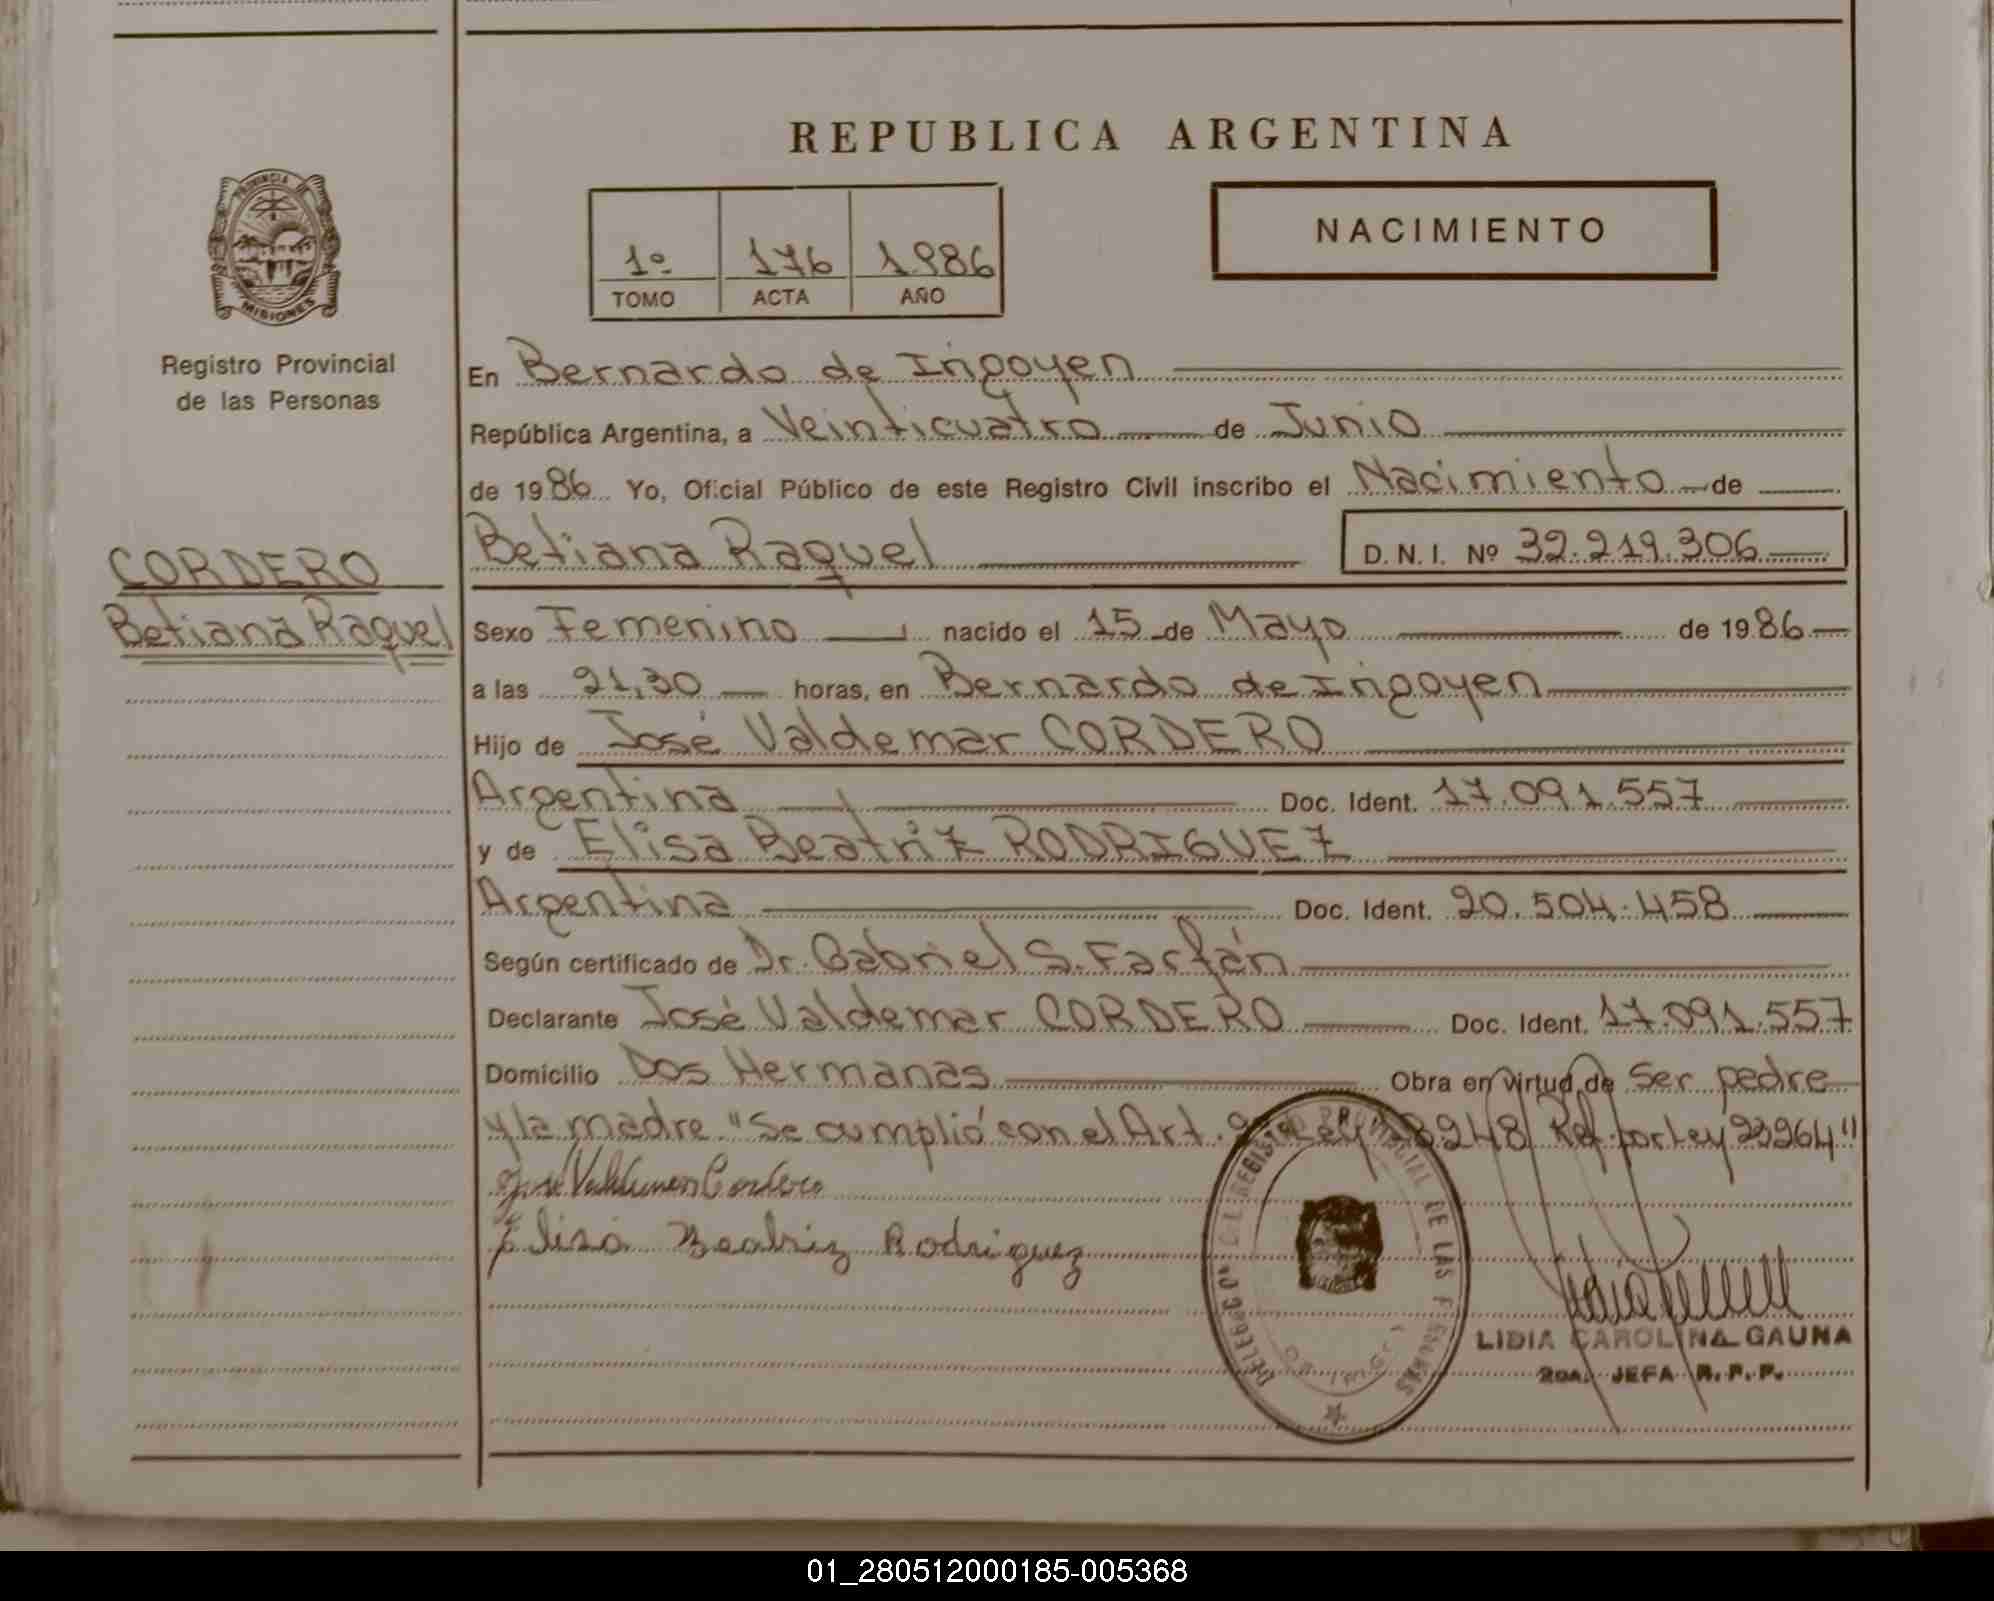 REPUBLICA ARGENTINA
PROVINCIA DE
MISIONES
Registro Provincial
de las Personas
1º 176 1986
TOMO ACTA AÑO
NACIMIENTO
En Bernardo de Irigoyen
República Argentina, a Veinticuatro de Junio
de 1986 Yo, Oficial Público de este Registro Civil inscribo el Nacimiento de
CORDERO
Betiana Raquel
Betiana Raquel D.N.I. Nº 32.219.306
Sexo Femenino nacido el 15 de Mayo de 1986
a las 21,30 horas, en Bernardo de Irigoyen
Hijo de José Valdemar CORDERO
Argentina Doc. Ident. 17.091.557
y de Elisa Beatriz RODRIGUEZ
Argentina Doc. Ident. 20.504.458
Según certificado de Dr. Gabriel S. Farfán
Declarante José Valdemar CORDERO Doc. Ident. 17.091.557
Domicilio Dos Hermanas Obra en virtud de ser padre
y la madre "Se cumplió con el Art. Ley 18248 Ref. por Ley 23264"
José Valdemar Cordero
Elisa Beatriz Rodriguez
REGISTRO PROVINCIAL DE LAS PERSONAS
LIDIA CAROLINA GAUNA
2DA. JEFA R.P.P.
01_280512000185-005368